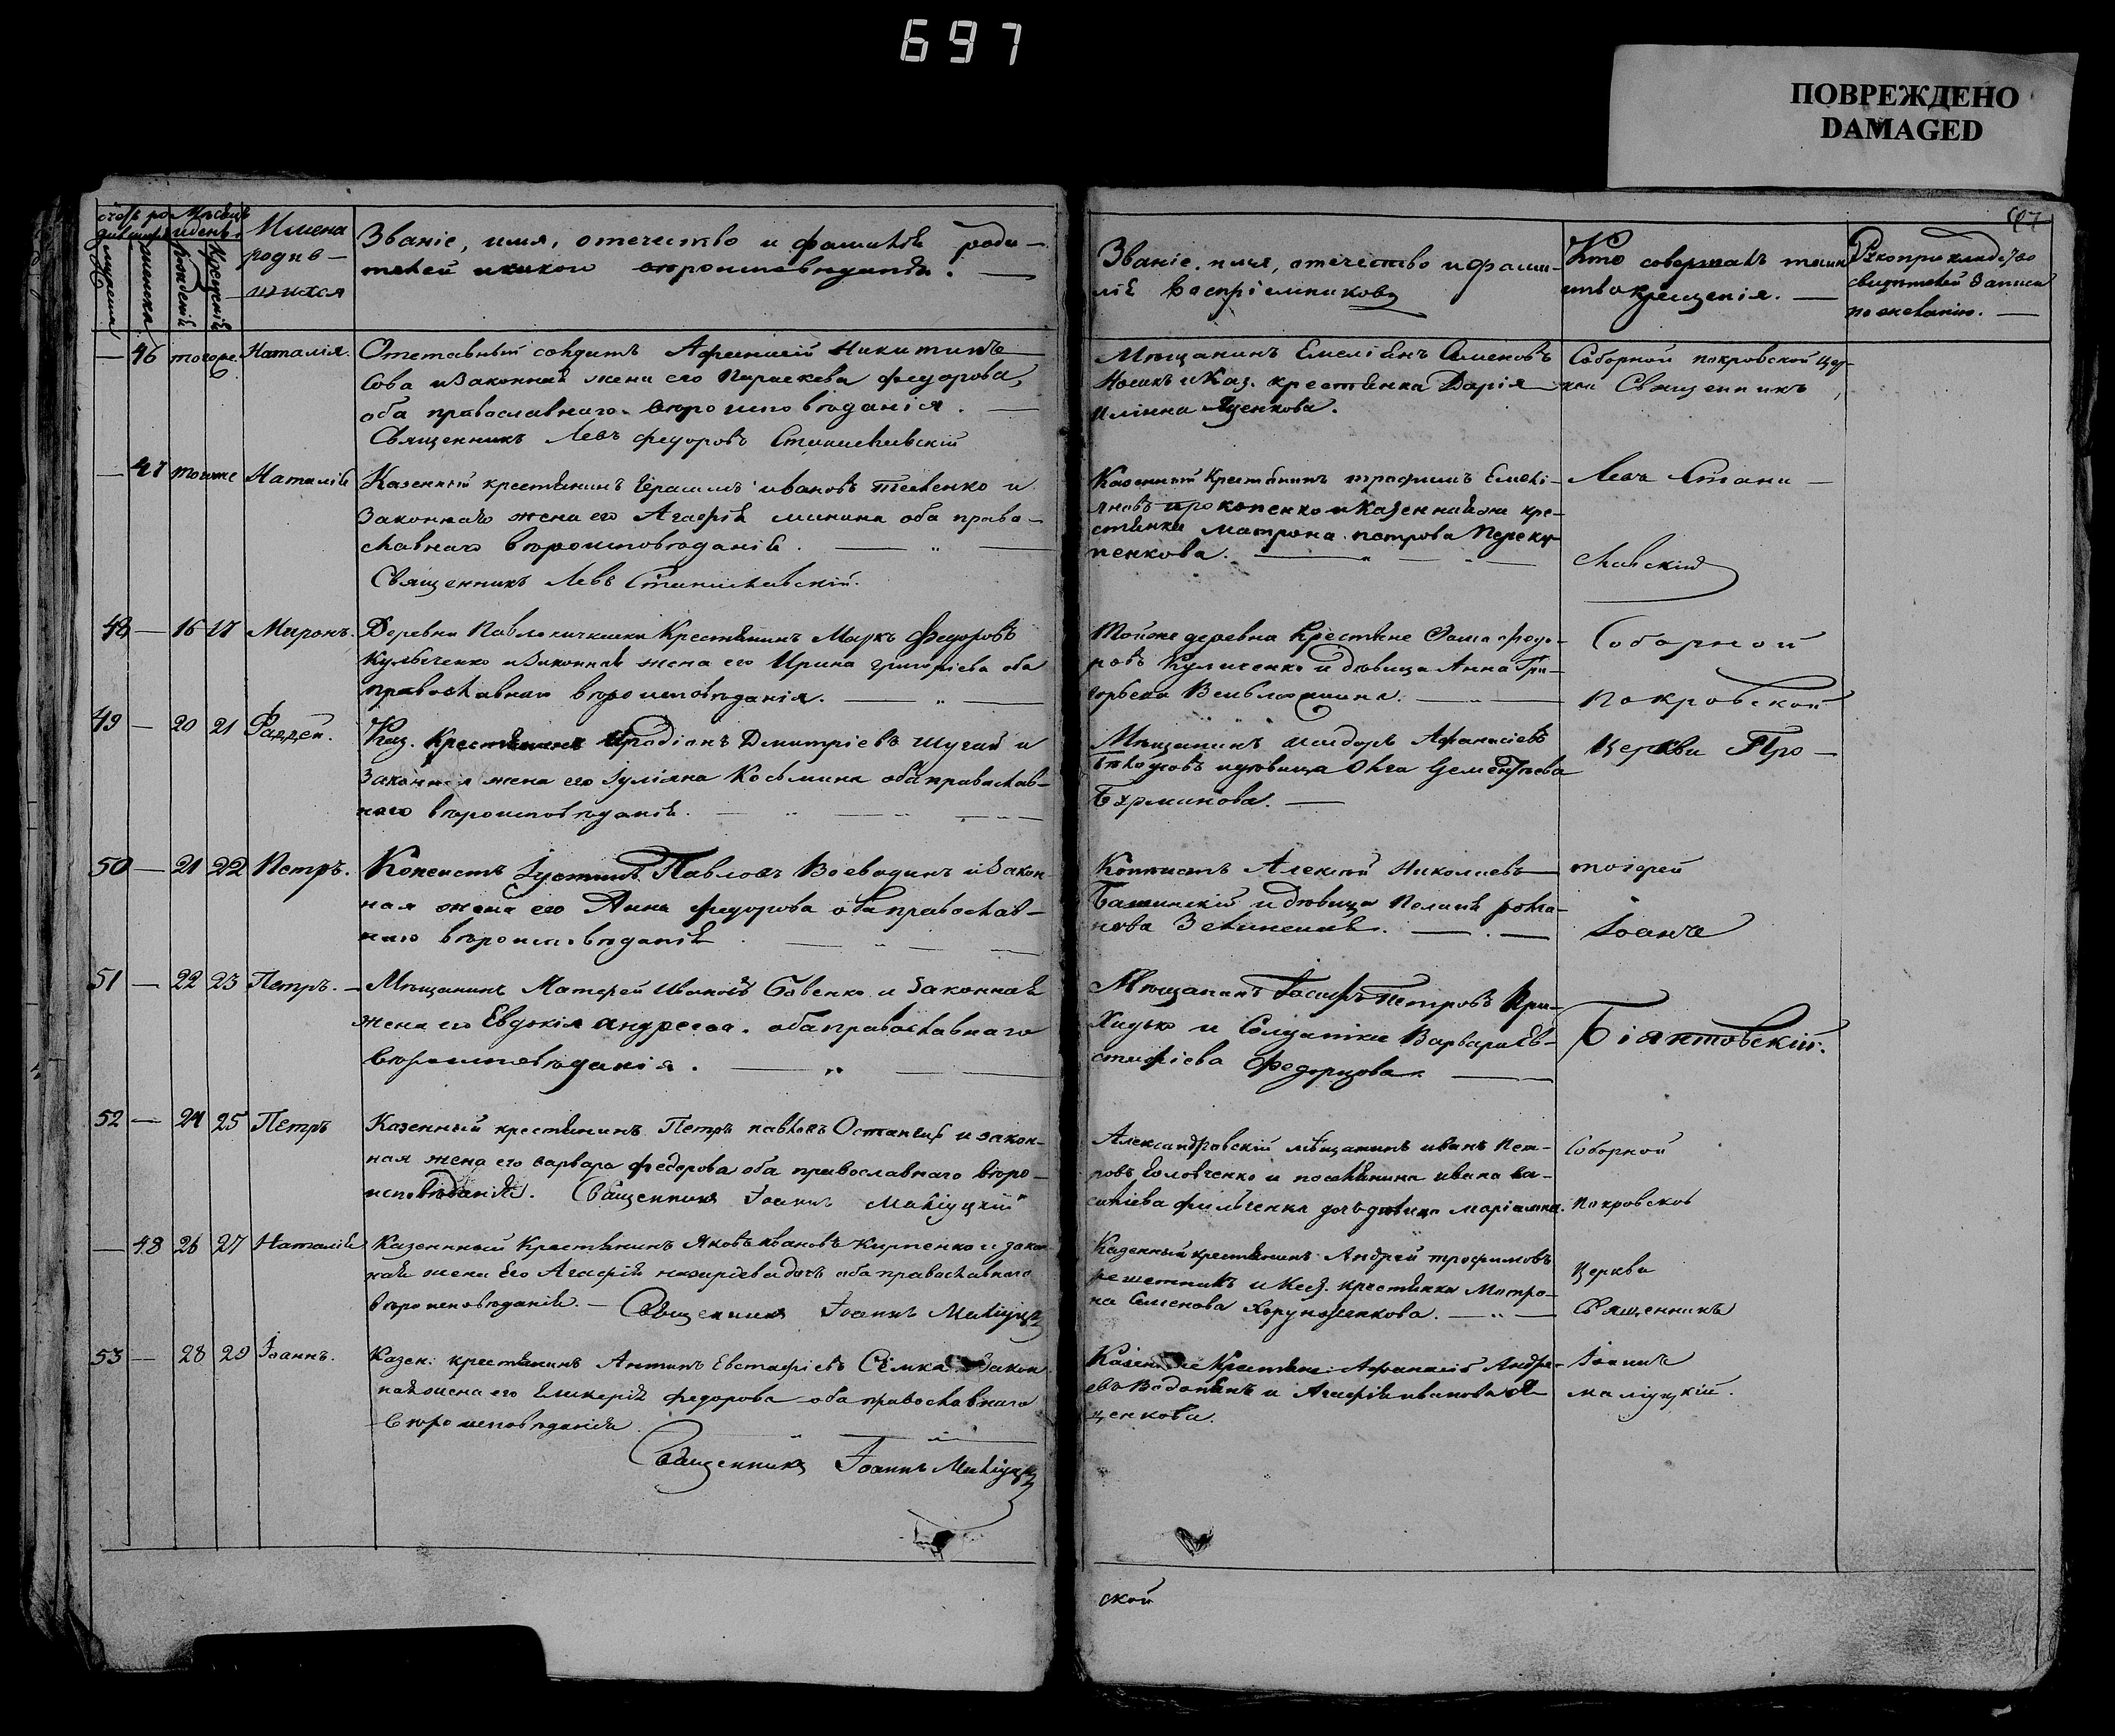 697
ПОВРЕЖДЕНО
DAMAGED
Имена родив-шихся
Званіе, имя, отечество и фамилія роди-
телей и какого вѣроисповѣданія.
Званіе, имя, отечество и фами-
лія воспріемниковъ
Кто совершалъ таин
ство крещенія.
Рукоприкладство
свидѣтелей записи
по желанію.
46 того же Наталія. Отставный солдатъ Афанасій Никитинъ
Сова и законная жена его Параскева Федорова,
оба православнаго вѣроисповѣданія.
Священникъ Левъ Федоровъ Станиславскій
Мѣщанинъ Емеліанъ Семеновъ
Носикъ и Каз. крестьянка Дарія
Иліина Яценкова.
Соборной покровской цер-
кви Священникъ
47 того же Наталія Казенный крестьянинъ Герасимъ Ивановъ и
Законная жена его Агафія Минина оба право-
славнаго вѣроисповѣданія.
Священникъ Левъ Станиславскій.
Казенный крестьянинъ трофимъ Емелі-
яновъ прокопенко и казенная кре-
стьянка Матрона петрова Переку-
пенкова.
Левъ Стани-
славскій
48 — 16 17 Миронъ. Деревни Павлокичкаски Крестьянинъ Маркъ Федоровъ
Куличенко и Законная жена его Ирина григоріева оба
православнаго вѣроисповѣданія.
Тойже деревни Крестьяне Фома Федо-
ровъ Куличенко и дѣвица Анна Гри-
горьева
Соборной
покровской
49 — 20 21 Фаддей. Каз. Крестьянинъ Иродіонъ Димитріевъ Шугай и
Законная жена его Іуліана Косьмина оба православ-
наго вѣроисповѣданія.
Мѣщанинъ Исидоръ Афанасіевъ
и дѣвица Ольга Дементьева
церкви Про-
50 — 21 22 Петръ. Копеистъ Іустинъ Павловъ Воеводинъ и Закон-
ная жена его Анна федорова оба православ-
наго вѣроисповѣданія.
Коппистъ Алексей Николаевъ
Башинскій и дѣвица
Зелинская.
тоіерей
Іоаннъ
51 — 22 23 Петръ. Мѣщанинъ Матфей Ивановъ Бовенко и Законная
жена его Евдокія андреева. оба православнаго
вѣроисповѣданія.
Мѣщанинъ Іосифъ Петровъ При-
ходько и Солдатка Варвара Ев-
стафіева Федорцова.
Біянтовскій.
52 — 24 25 Петръ Казенный крестьянинъ Петръ павловъ и закон-
ная жена его варвара федорова оба православнаго вѣро-
исповѣданія. Священникъ Іоаннъ Маліуцкій
Александровскій мѣщанинъ иванъ Пет-
ровъ Головченко и поселянина ивана ва-
силіева фильченка дочь дѣвица маріамна.
Соборной
Покровской
— 48 26 27 Наталія Казеннный Крестьянинъ Яковъ Ивановъ Кирпенко и закон-
ная жена его Агафія оба православнаго
вѣроисповѣданія. — Священникъ Іоаннъ Маліуцкій
Казенный крестьянинъ Андрей трофимовъ
решетникъ и Каз. крестьянка Матро-
на Семенова Хоруноженкова.
Церкви
Священникъ
53 — 28 29 Іоаннъ. Казен: крестьянинъ Антипъ Евстафіевъ Сѣмка и закон
ная жена его Гликерія федорова оба православнаго
вѣроисповѣданія.
Священникъ Іоаннъ Маліуцкій
Казенные Крестьяне: Афанасій Андре-
евъ Водопянъ и Агафія иванова Я-
ценкова.
Іоаннъ
маліуцкій.
ской